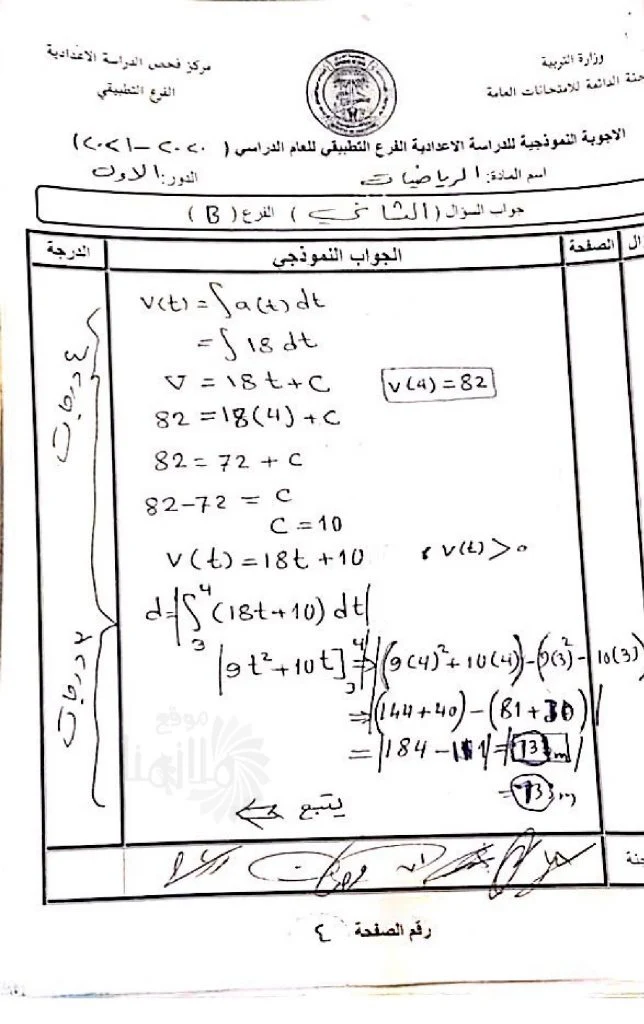 وزارة التربية
جنة الدائمة للامتحانات العامة
مركز فحص الدراسة الاعدادية
الفرع التطبيقي
الاجوبة النموذجية للدراسة الاعدادية الفرع التطبيقي للعام الدراسي ( ٢٠٢٠ - ٢٠٢١ )
اسم المادة: الرياضيات الدور: الاول
جواب السؤال ( الثاني ) الفرع ( B )
ال الصفحة الجواب النموذجي الدرجة
V(t) = ∫ a(t) dt
= ∫ 18 dt
V = 18t + C V(4) = 82
82 = 18(4) + C
82 = 72 + C
82 - 72 = C
C = 10
V(t) = 18t + 10 , V(t) > ٠
d = |∫₃⁴ (18t + 10) dt|
|9t² + 10t]₃⁴ ⇒ |(9(4)² + 10(4)) - (9(3)² - 10(3)
⇒ |(144 + 40) - (81 + 30)|
= |184 - 111| = |73 m|
= 73 m
٤ درجات
٢ درجات
يتبع
موقع
ملازمنا
جنة
رقم الصفحة ( ٤ )